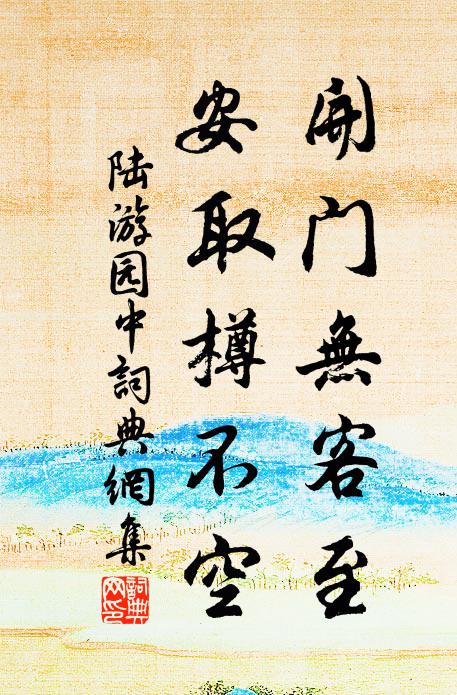 開门無客至
安取樽不空
陆游园中詞典網集
詞典